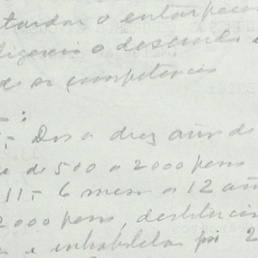 tardar o entorpecer
de su competencia
- :
- Dos a diez años de
de 500 a 2000 pesos
11.- 6 meses a 12 añ
2000 pesos, destitución
e inhabilita por 2